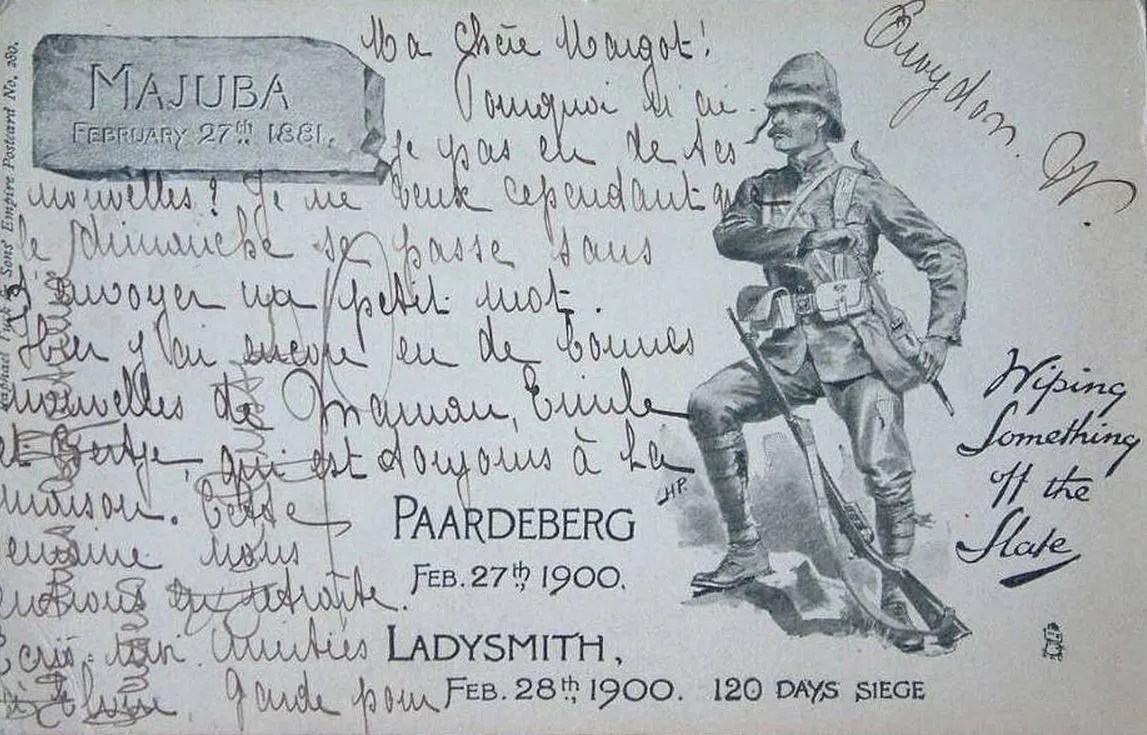 MAJUBA
FEBRUARY 27th 1881.
Raphael Tuck & Sons' Empire Postcard No. 280.
Croydon. W.
Ma Chère Margot!
Pourquoi n'ai-
je pas eu de tes
nouvelles? Je ne veux cependant que
le dimanche se passe sans
t'envoyer un petit mot.
Hier j'ai encore eu de bonnes
nouvelles de Maman, Emile
et, qui est toujours à la
maison. Cette
semaine nous
entrons en retraite.
Ecris-moi. Amitiés
à. Garde pour
Wiping
Something
off the
Slate
HP.
PAARDEBERG
FEB. 27th, 1900.
LADYSMITH,
FEB. 28th, 1900. 120 DAYS SIEGE